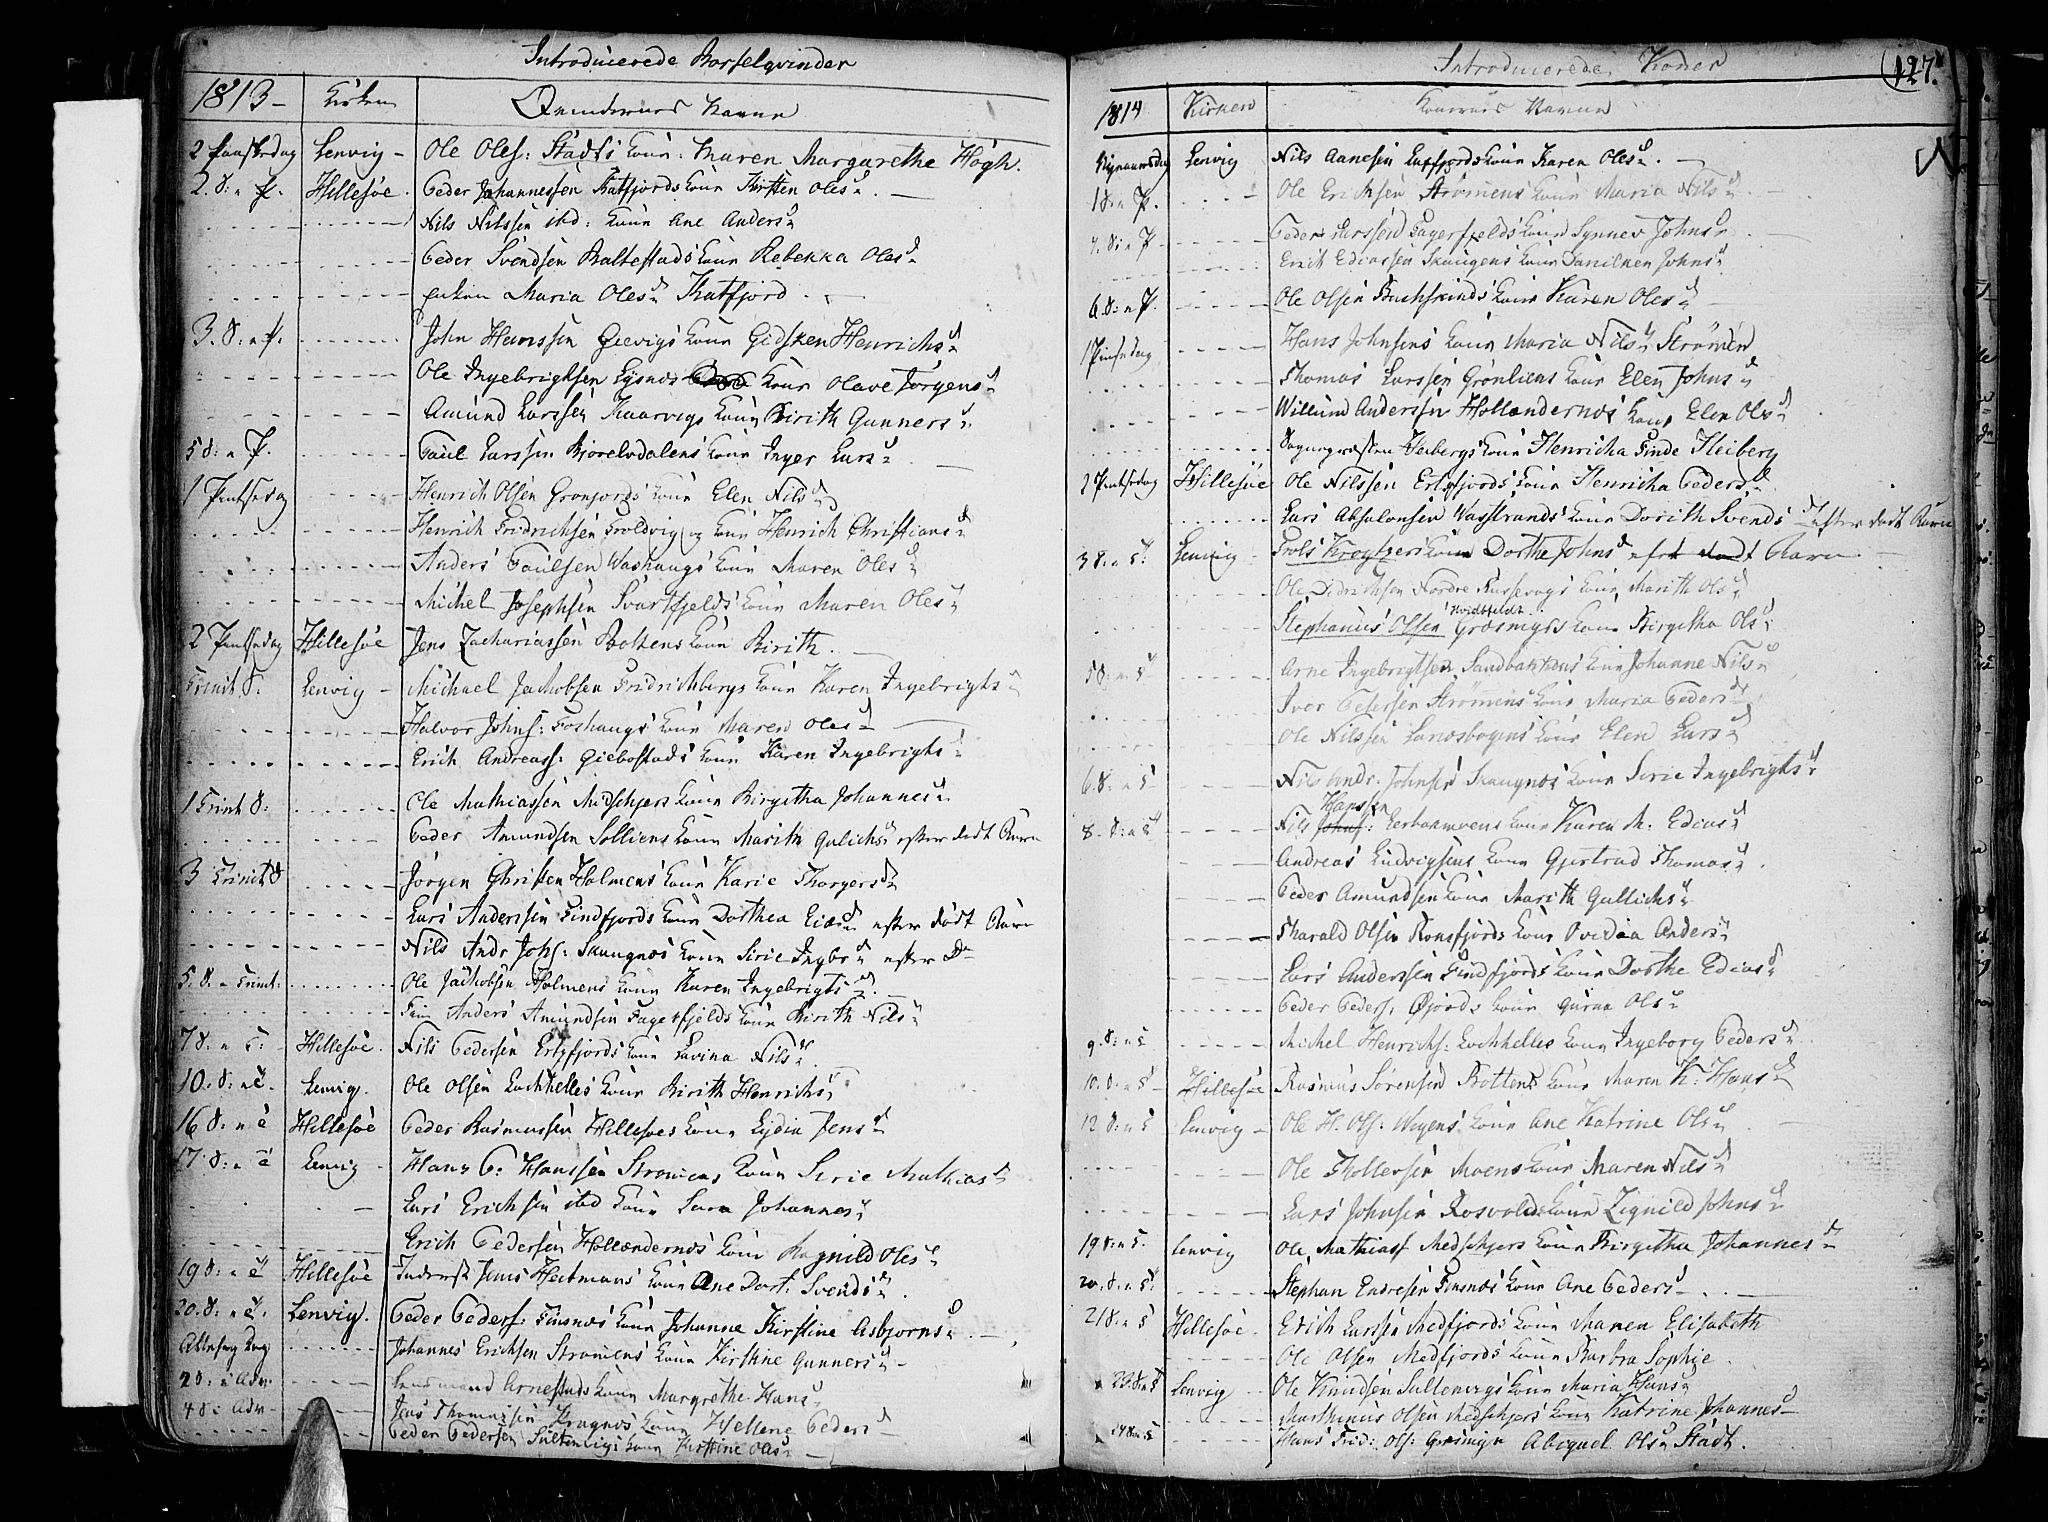 Introducerede Barselqvinder
1813 - Kirken Qvindernes Navne
2 Paaskedag Lenvig - Ole Ols: Stadts Kone: Maren Margarethe Høgh.
2. S: n P. Hillesøe. Peder Johannessen Katfjords Kone Kirsten Olesd
Nils Nilssen ibd: Kone Ane Andersd
Peder Svendsen Baltestads Kone Rebekka Olesd
Enken Maria Olesd Katfjord
3. S: n P. John Hanssen Gievigs Kone Gidsken Henrichsd
Ole Ingebrigtsen Lysnes Kone Olave Jørgensd
Amund Larssen Kaarvigs Kone Birith Gunnersd
5 S: n P. Paul Larssen Bjorelvdalens Kone Inger Larsd
1 Pintsedag Henrich Olsen Grønjords Kone Elen Nilsd
Henrich Fridrichsen Troldvig og Kone Henrich Christiansd
Anders Paulsen Washaugs Kone Maren Olesd
Michel Josephsen Svartfjelds Kone Maren Olesd
2 Pintsedag Hillesøe Jens Zachariassen Bottens Kone Birith
Trinit S. Lenvig - Michael Jachobsen Fridrichbergs Kone Karen Ingebrigtsd
Halvor Johns: Foshaugs Kone Maren Olesd
Erich Andreass: Giebostads Kone Karen Ingebrigtsd
1 Trinit S: Ole Mathiassen Midschjers Kone Birgitha Johannesd
Peder Amundsen Solliens Kone Marith Gulichsd efter dødt Barn
3 Trinit S Jørgen Christen Holmens Kone Karie Thorgersd
Lars Anderssen Findfjords Kone Dorthea Eliæd efter dødt Barn
Nils Andr Joh: Skaugnæs Kone Sirie Ingbrd efter Do
5. S. n Trinit: Ole Jachobsen Holmens Kone Karen Ingebrigtsd
Anders Amundsen Fagerfjelds Kone Birith Nilsd
7 S: n T: Hillesøe. Nils Pedersen Ersfjords Kone Lavina Nilsd
10. S: n T. Lenvig. Ole Olsen Lochhelles Kone Birith Henrichsd
16 S: n T Hillesøe Peder Rasmussen Hillesøes Kone Lydia Jensd
17. S: n T Lenvig - Hans P: Hanssen Strømens Kone Sirie Mathiasd
Lars Erichsen ibd Kone Sara Johannesd
Erich Pedersen Hollændernæs Kone Ragnild Olesd
19 S: n T Hillesøe Jens Heitmans Kone Ane Dort: Svendsd
20. S: n T. Lenvig. Peder Peders: Finsnæs Kone Johanne Kirstine Asbjørnsd
Allehelg Dag Johannes Erichsen Strømens Kone Kirstine Gunnersd
2 S: i Adv. Kone Margrethe Hansd
4 S: Adv Jens Thomassen Krognæs Kone Hellene Pedersd
Peder Pedersen Kone Kirstine Olesd
Introducerede Koner 127.
1814 Kirken Konernes Navne
Lenvig Nils Aanesen Kone Karen Olesd.
1 S. n P. Ole Erichsen Strømens Kone Maria Nilsd
4. S: n P Peder Larssen Fagerfjelds Kone Synnev Johnsd
Erich Ediassen Skaugens Kone Johnsd
6. S: n P. Ole Olsen Buchskinds Kone Karen Olesd
1 Pintsedag Hans Johnsens Kone Maria Nilsd Strømen
Thomas Larssen Grønliens Kone Elen Johnsd
Willum Andersen Hollændernæs Kone Elen Olsd
Sognepræsten Heibergs Kone Henricha Finde Heiberg
2 Pintsedag Hillesøe Ole Nilssen Ersfjords Kone Henricha Pedersd
Lars Absalonsen Vasstrands Kone Dorith Svendsd efter dødt Barn
3 S. n T: Lenvig Kone Dorthe Johnsd efter dødt Barn
Ole Didrichsen Nordre Kone Marith Olsd
Hvidtfeldt
Stephanus Olsen Græsmyrs Kone Birgitha Olsd
5 S: n T Arne Ingebrigtsen Sandbakkens Kone Johanne Nilsd
Iver Pedersen Strømens Kone Maria Pedersd
Ole Nilssen Kone Elen Larsd
6. S: n T Nils Andr: Johnsen Skaugnæs Kone Sirie Ingebrigtsd
Hanssen
8. S: n T Nils Johns: Kone Karen M: Ediasd
Andreas Ludvigsens Kone Gjertrud Thomasd
Peder Amundsen Kone Marith Gullichsd
Tharald Olsen Rønsfjords Kone Ovidia Andersd
Lars Anderssen Findfjords Kone Dorthe Ediasd
Peder Peders: Øjords Kone Guraa Olsd
9. S: n T Michel Henrichs: Lochhelles Kone Ingeborg Pedersd
10. S: n T Hillesøe Rasmus Sørensen Bottens Kone Maren K: Hansd
12 S: n T Lenvig - Ole H. Ols: Kone Ane Katrine Olsd
Ole Thollefsen Moens Kone Maren Nilsd
Lars Johnsen Rosvolds Kone Zignild Johnsd
19 S: n T. Lenvig Ole Mathiass Medschjers Kone Birgitha Johannesd
20. S: n T: Stephan Endresen Finsnæs Kone Ane Pedersd
21 S: n T Hillesøe - Erich Larssen Medfjords Kone Maren Elisabeth
Ole Olsen Medfjords Kone Barbra Sophie
23. S: n T Lenvig Ole Knudsen Kone Maria Hansd
Marthinus Olsen Medschjers Kone Katrine Johannesd
24 S: n T Hans Frid: Ols: Græsmyr Abigael Olsd Stadt.